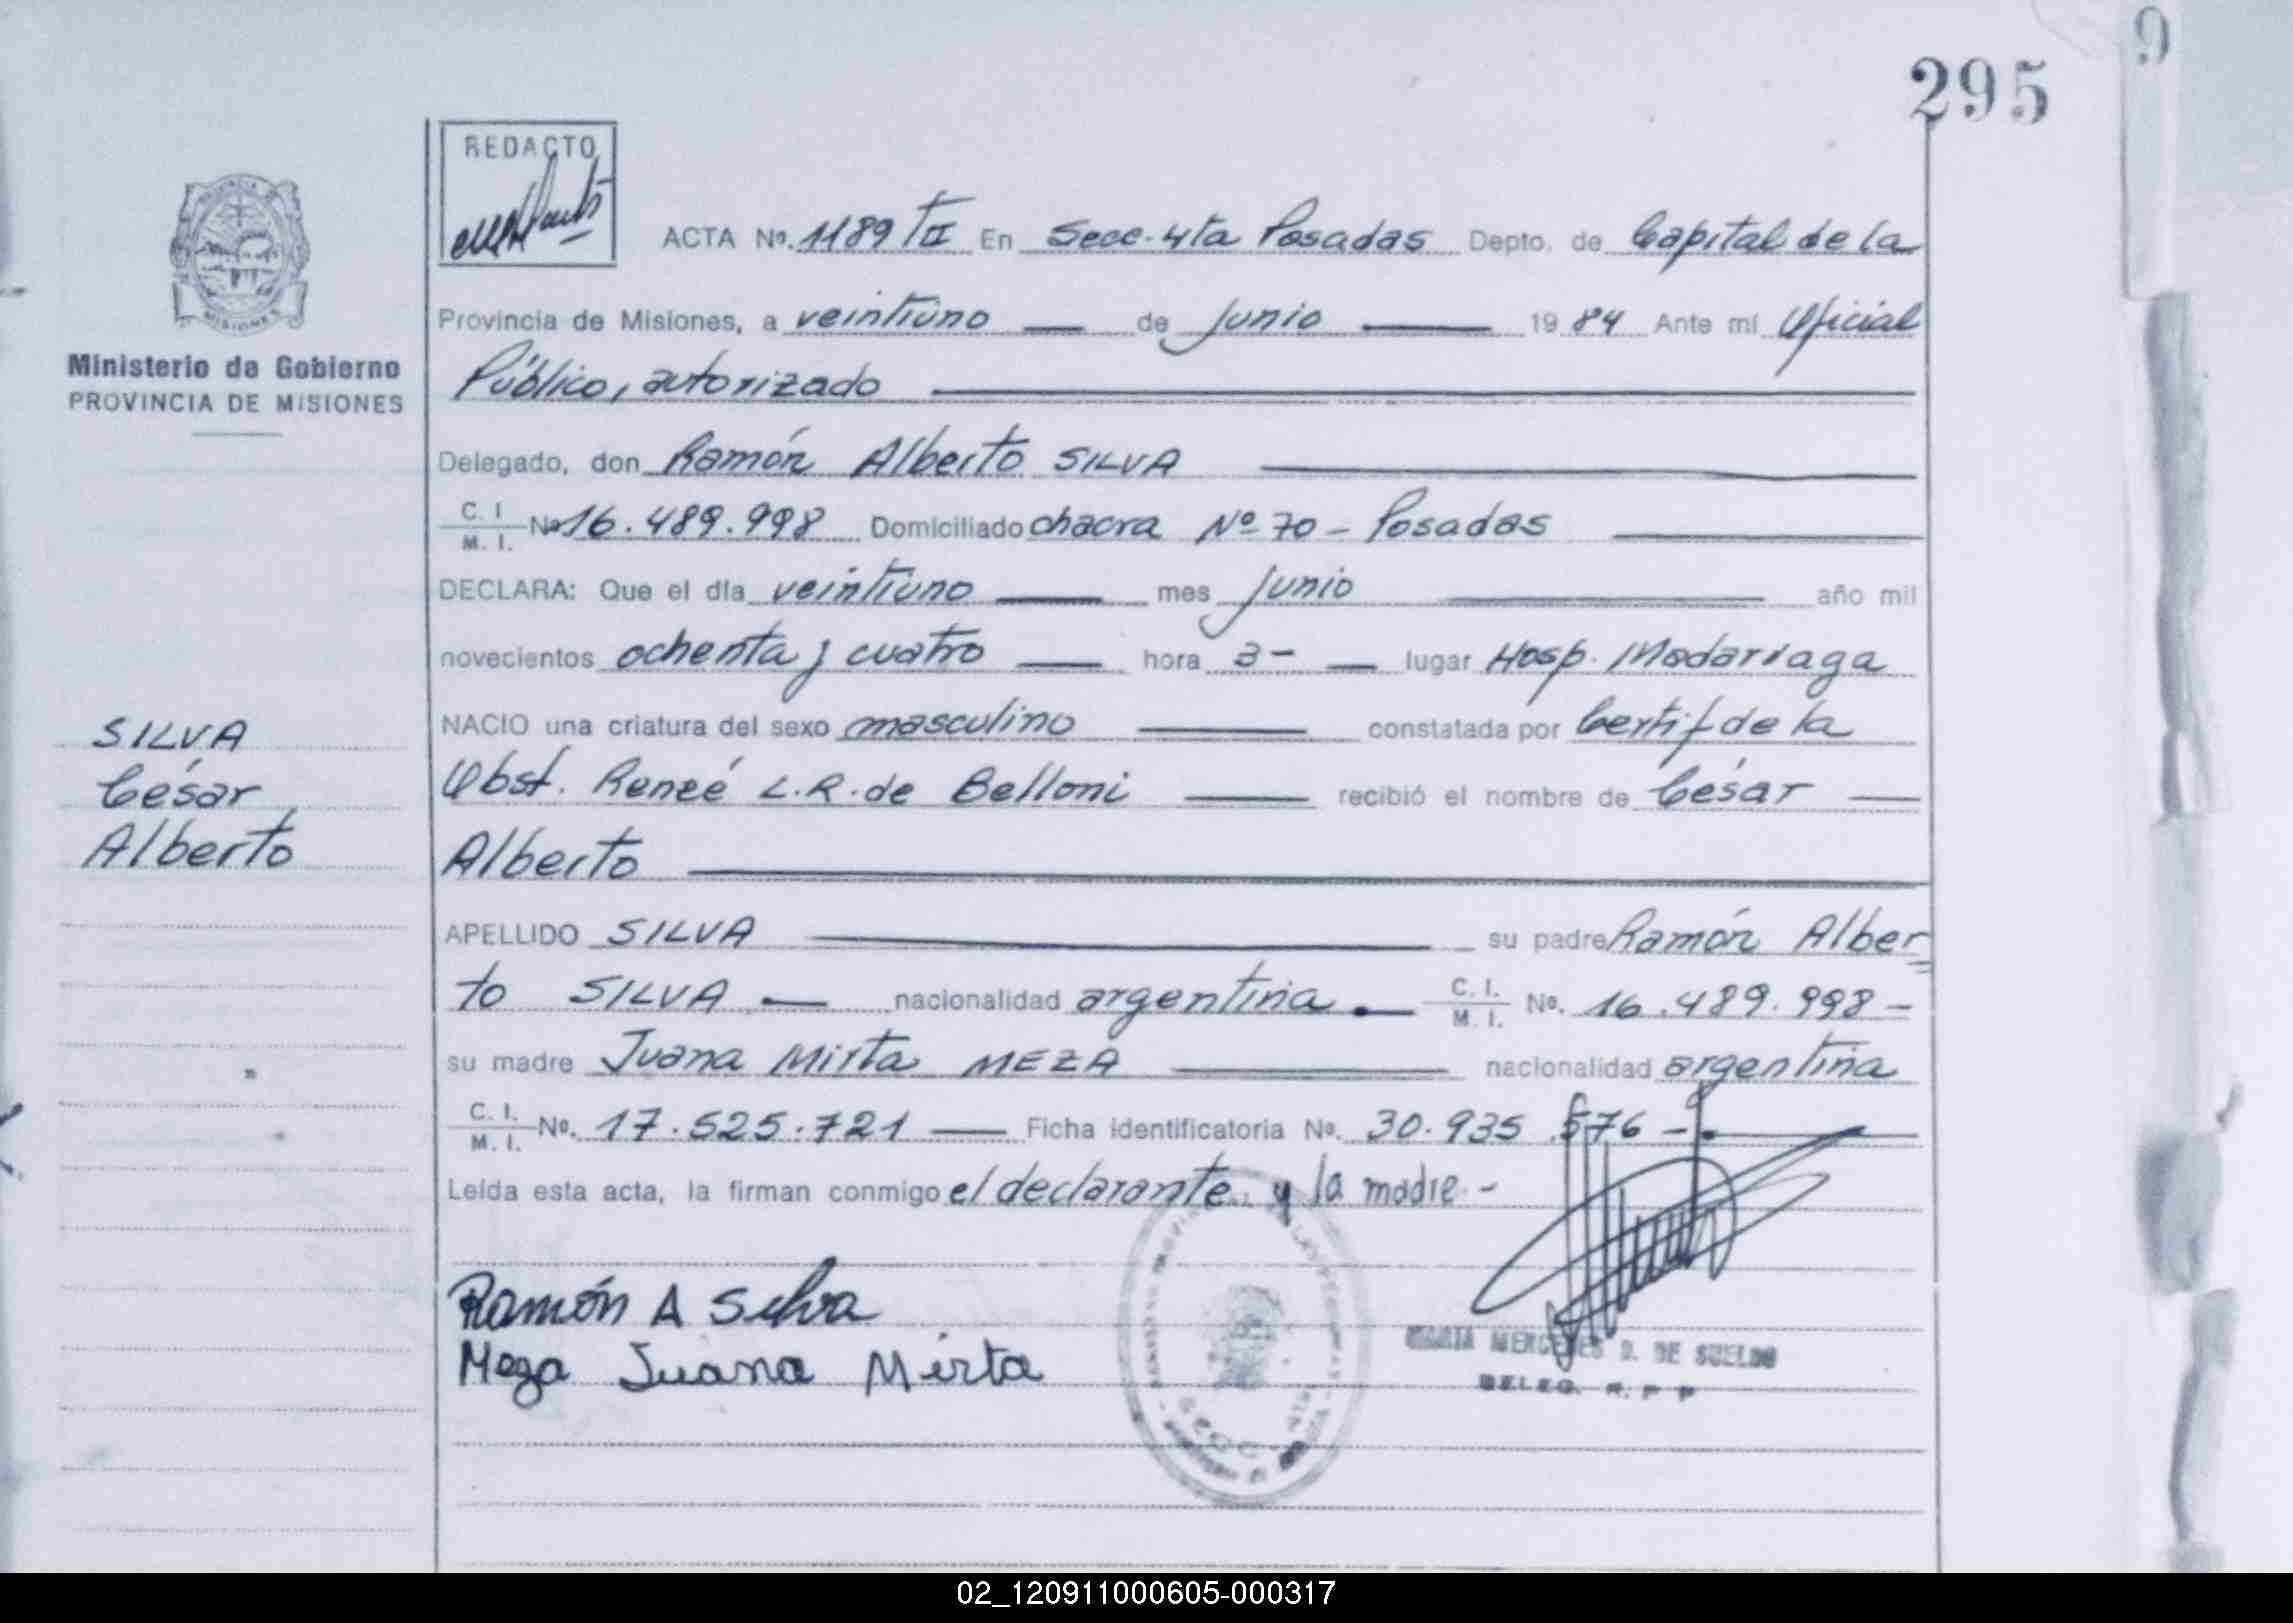 295
9
REDACTO
ACTA Nº. 1189 TII En Secc. 4ta Posadas Depto. de Capital de la
Provincia de Misiones, a veintiuno — de junio — 19 84 Ante mí Oficial
Público, autorizado —
Ministerio de Gobierno
PROVINCIA DE MISIONES
Delegado, don Ramón Alberto SILVA —
C. I. / M. I. Nº 16.489.998 Domiciliado chacra Nº 70 - Posadas —
DECLARA: Que el día veintiuno — mes junio — año mil
novecientos ochenta y cuatro — hora 3 - — lugar Hosp. Madariaga
NACIO una criatura del sexo masculino — constatada por Certif de la
Obst. Reneé L.R. de Belloni — recibió el nombre de César —
Alberto —
SILVA
César
Alberto
APELLIDO SILVA — su padre Ramón Alber
to SILVA — nacionalidad argentina. — C. I. / M. I. Nº. 16.489.998 -
su madre Juana Mirta MEZA — nacionalidad argentina
C. I. / M. I. Nº. 17.525.721 — Ficha identificatoria Nº. 30.935.576 - . —
Leída esta acta, la firman conmigo el declarante y la madre. -
Ramón A Silva
Meza Juana Mirta
MARTA MERCEDES D. DE SUELDO
DELEG. R. P P
SECC. 4ta
02_120911000605-000317